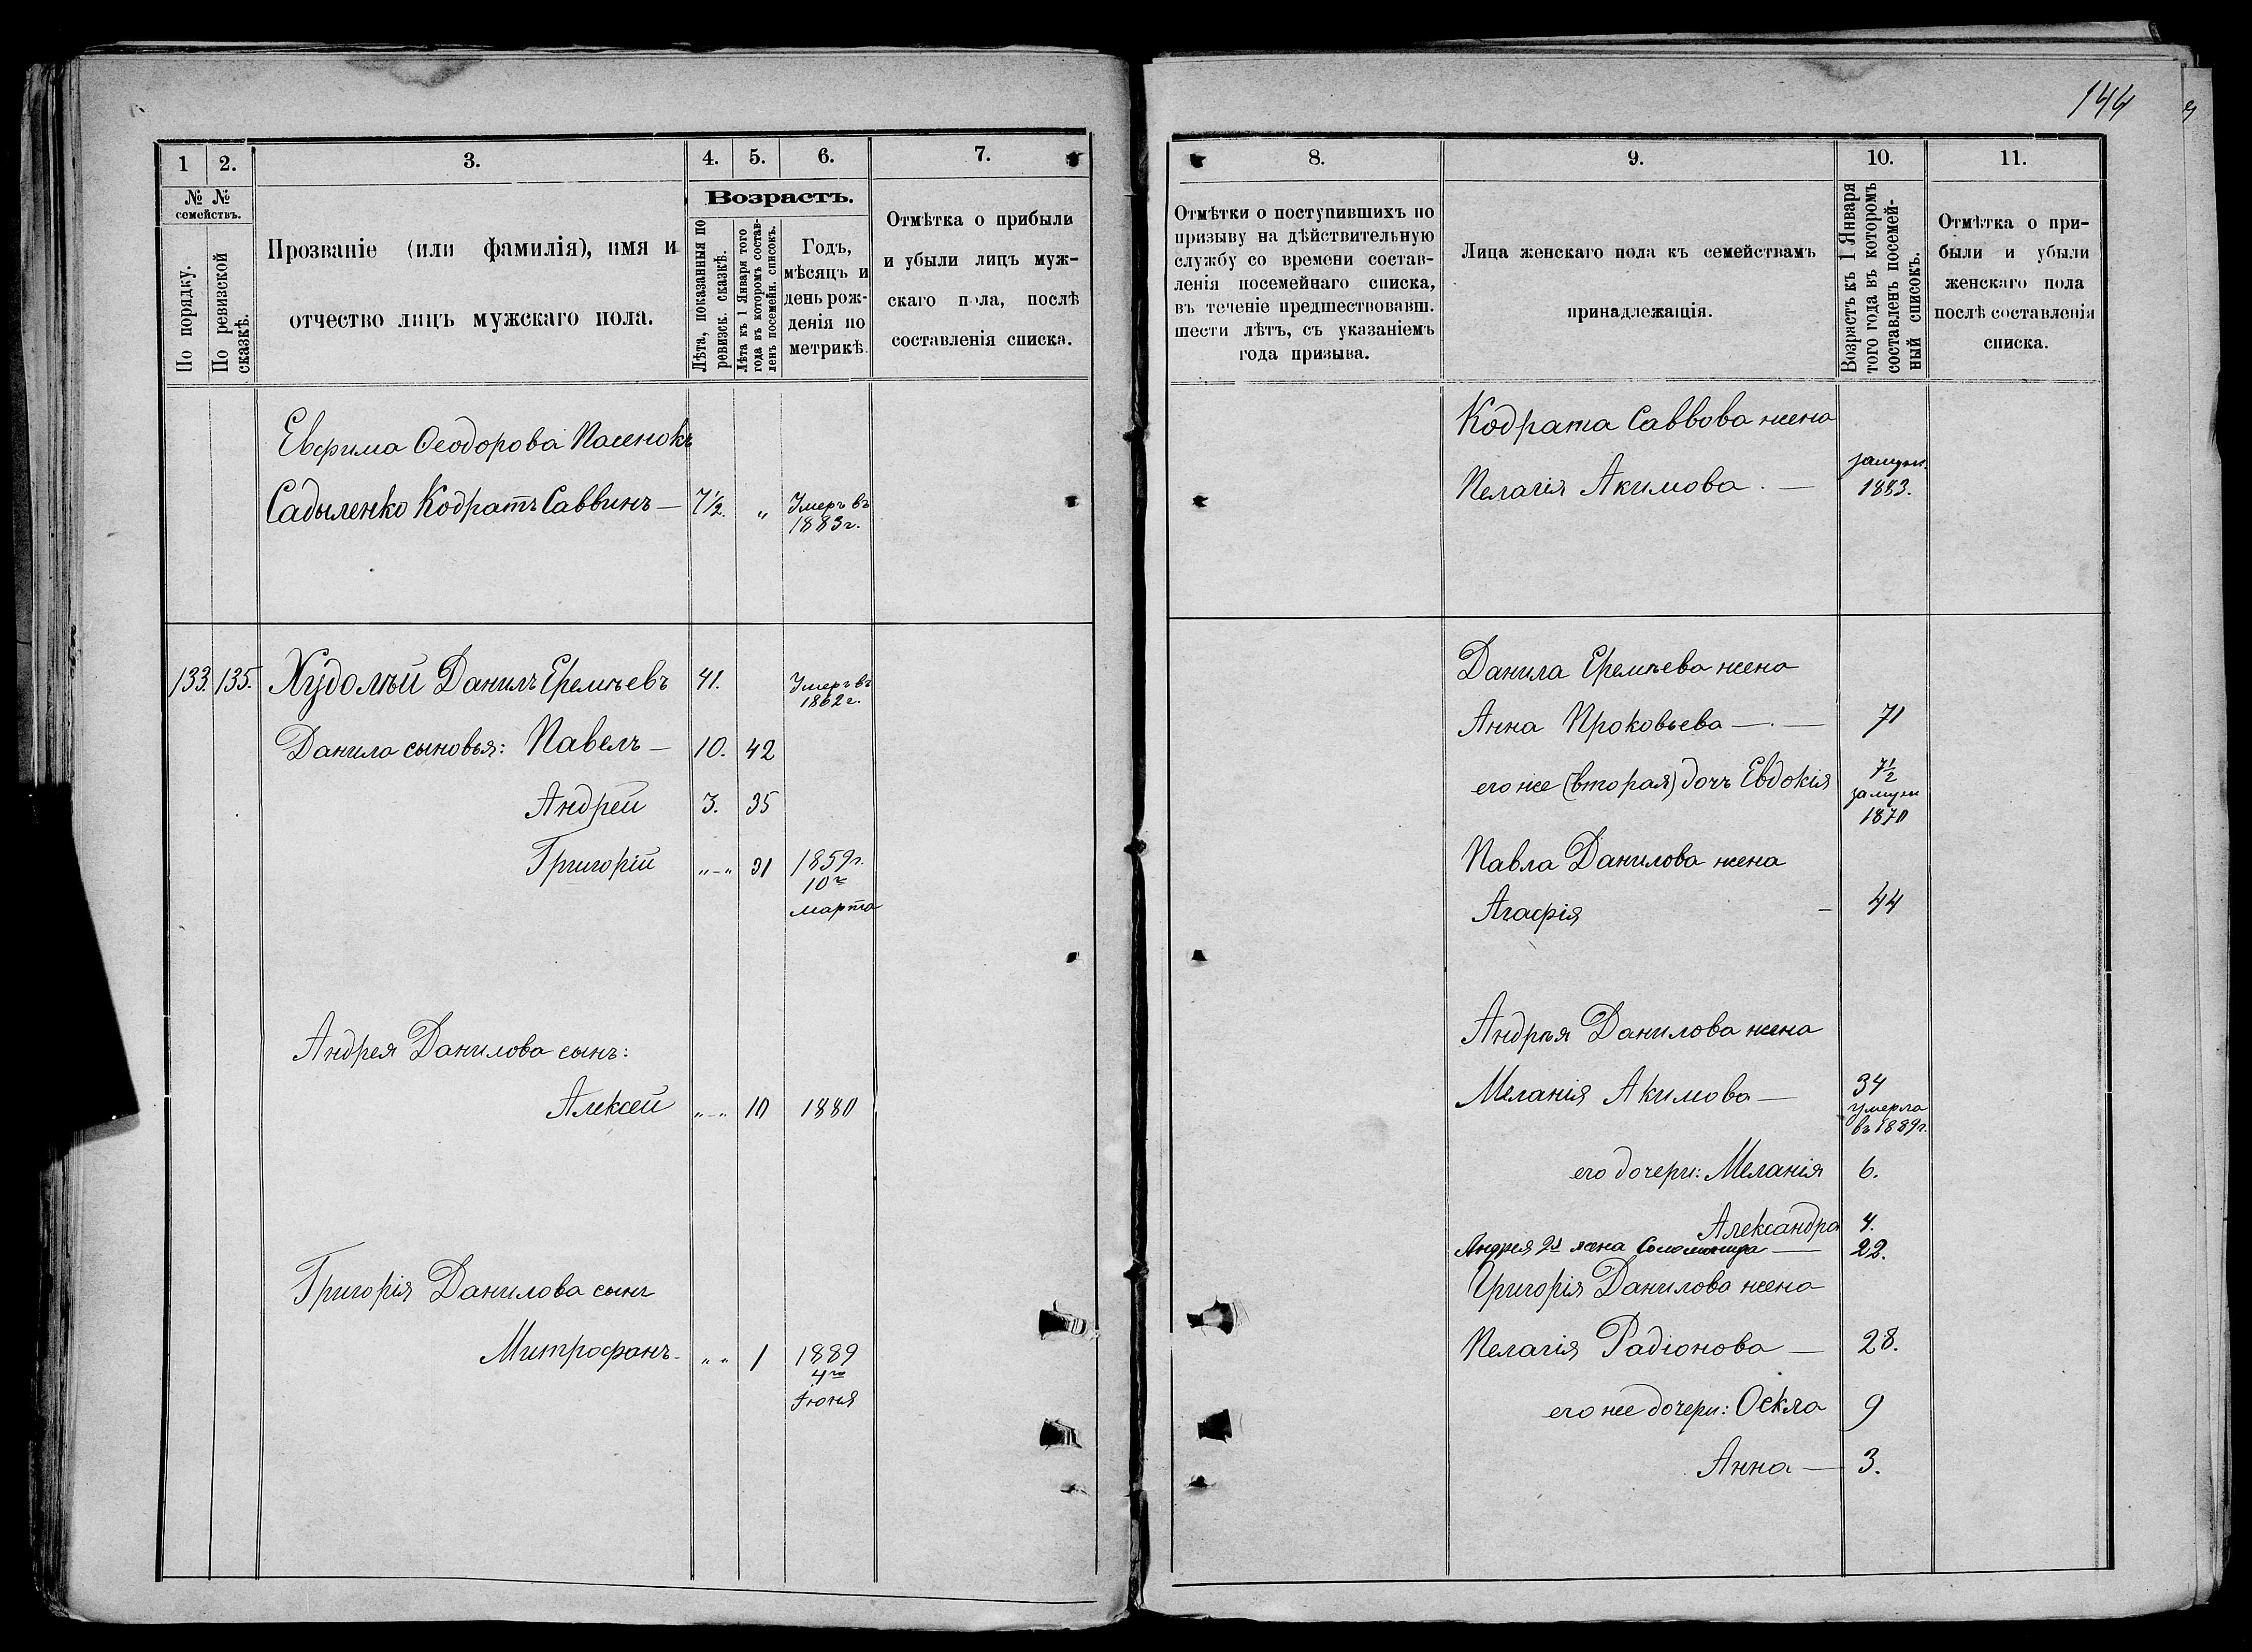 144
1
2.
3.
4.
5.
6.
7.
№ №
семействъ.
По порядку.
По ревизской
сказкѣ.
Прозваніе (или фамилія), имя и
отчество лицъ мужскаго пола.
Возрастъ.
Лѣта, показанныя по
ревизск. сказкѣ.
Лѣта къ 1 Января того
года въ которомъ состав-
ленъ посемейн. списокъ.
Годъ,
мѣсяцъ и
день рож-
денія по
метрикѣ.
Отмѣтка о прибыли
и убыли лицъ муж-
скаго пола, послѣ
составленія списка.
Евфима Ѳеодорова Пасенокъ
Садыленко Кодратъ Саввинъ — 7½. „ Умеръ въ
1883 г.
133. 135. Худолѣй Данилъ Еремѣевъ 41. Умеръ въ
1862 г.
Данила сыновья: Павелъ — 10. 42
Андрей 3. 35
Григорій „-„ 31 1859 г.
10го
марта
Андрея Данилова сынъ:
Алексей „-„ 10 1880
Григорія Данилова сынъ
Митрофанъ - „ „ 1 1889
4го
Іюня
8.
9.
10.
11.
Отмѣтки о поступившихъ по
призыву на дѣйствительную
службу со времени состав-
ленія посемейнаго списка,
въ теченіе предшествовавш.
шести лѣтъ, съ указаніемъ
года призыва.
Лица женскаго пола къ семействамъ
принадлежащія.
Возрастъ къ 1 Января
того года въ которомъ
составленъ посемей-
ный списокъ.
Отмѣтка о при-
были и убыли
женскаго пола
послѣ составленія
списка.
Кодрата Саввова жена
Пелагія Акимова . — замуж.
1883.
Данила Еремѣева жена
Анна Прокофьева — . — 71
его же (вторая) дочь Евдокія 7½
замуж
1870
Павла Данилова жена
Агафія - 44
Андрѣя Данилова жена
Меланія Акимова — 34
умерла
въ 1889 г.
его дочери: Меланія 6.
Александра 4.
Андрея 2я жена Соломонида — 22.
Григорія Данилова жена
Пелагія Радіонова — 28.
его же дочери: Ѳекла 9
Анна — 3.